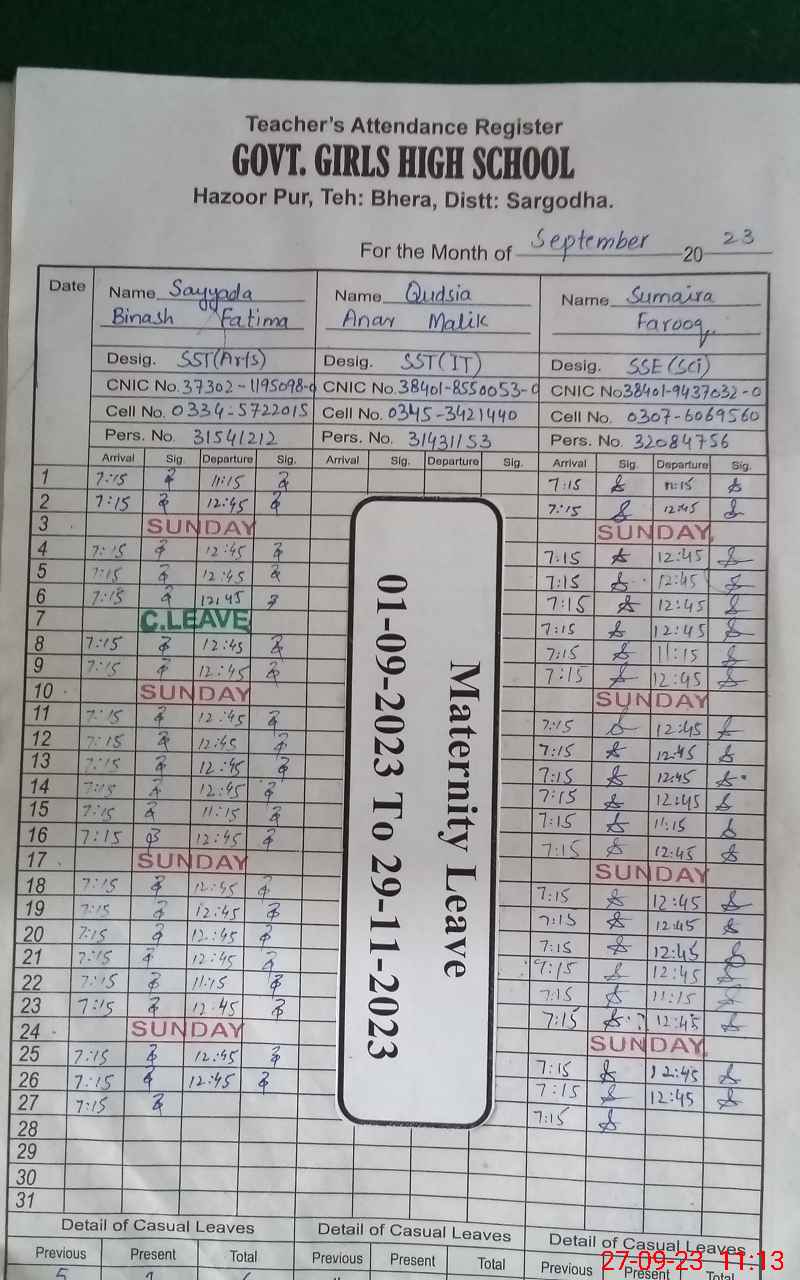 Teacher's Attendance Register
GOVT. GIRLS HIGH SCHOOL
Hazoor Pur, Teh: Bhera, Distt: Sargodha.
For the Month of September 2023
Date Name Sayyada Name Qudsia Name Sumaira
Binash Fatima Anar Malik Farooq
Desig. SST(Arts) Desig. SST(IT) Desig. SSE(Sci)
CNIC No. 37302-1195098-0 CNIC No. 38401-8550053-0 CNIC No 38401-9437032-0
Cell No. 0334-5722015 Cell No. 0345-3421440 Cell No. 0307-6069560
Pers. No. 31541212 Pers. No. 31431153 Pers. No. 32084756
Arrival Sig. Departure Sig. Arrival Sig. Departure Sig. Arrival Sig. Departure Sig.
1 7:15 11:15 7:15 11:15
2 7:15 12:45 7:15 12:45
3 SUNDAY SUNDAY
4 7:15 12:45 7:15 12:45
5 7:15 12:45 7:15 12:45
6 7:15 12:45 7:15 12:45
7 C.LEAVE 7:15 12:45
8 7:15 12:45 7:15 11:15
9 7:15 12:45 7:15 12:45
10 SUNDAY SUNDAY
11 7:15 12:45 7:15 12:45
12 7:15 12:45 7:15 12:45
13 7:15 12:45 7:15 12:45
14 7:15 12:45 7:15 12:45
15 7:15 11:15 7:15 11:15
16 7:15 12:45 7:15 12:45
17 SUNDAY SUNDAY
18 7:15 12:45 7:15 12:45
19 7:15 12:45 7:15 12:45
20 7:15 12:45 7:15 12:45
21 7:15 12:45 7:15 12:45
22 7:15 11:15 7:15 11:15
23 7:15 12:45 7:15 12:45
24 SUNDAY SUNDAY
25 7:15 12:45 7:15 12:45
26 7:15 12:45 7:15 12:45
27 7:15 7:15
28
29
30
31
Maternity Leave
01-09-2023 To 29-11-2023
Detail of Casual Leaves Detail of Casual Leaves Detail of Casual Leaves
Previous Present Total Previous Present Total Previous Present Total
27-09-23 11:13